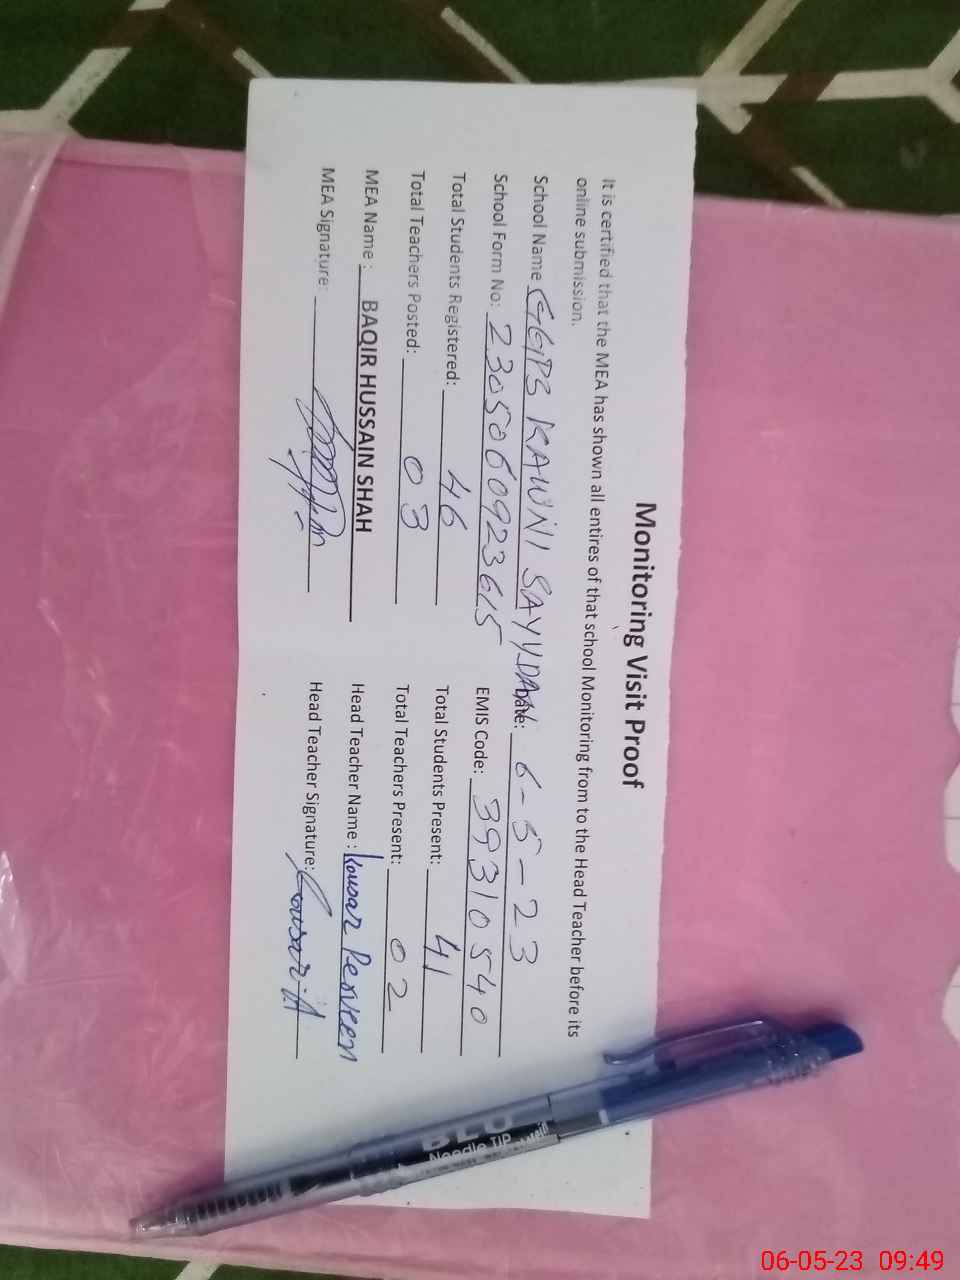 Monitoring Visit Proof
It is certified that the MEA has shown all entires of that school Monitoring from to the Head Teacher before its
online submission.
School Name GGPS KAWNI SAYYDAN Date: 6-5-23
School Form No: 2305060923615 EMIS Code: 39310540
Total Students Registered: 46 Total Students Present: 41
Total Teachers Posted: 03 Total Teachers Present: 02
MEA Name : BAQIR HUSSAIN SHAH Head Teacher Name : Kousar Perveen
MEA Signature: Head Teacher Signature:
Needle TIP
06-05-23 09:49